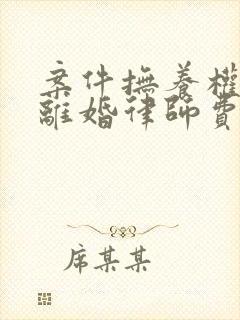 案件撫養權
離婚律師費
席某某